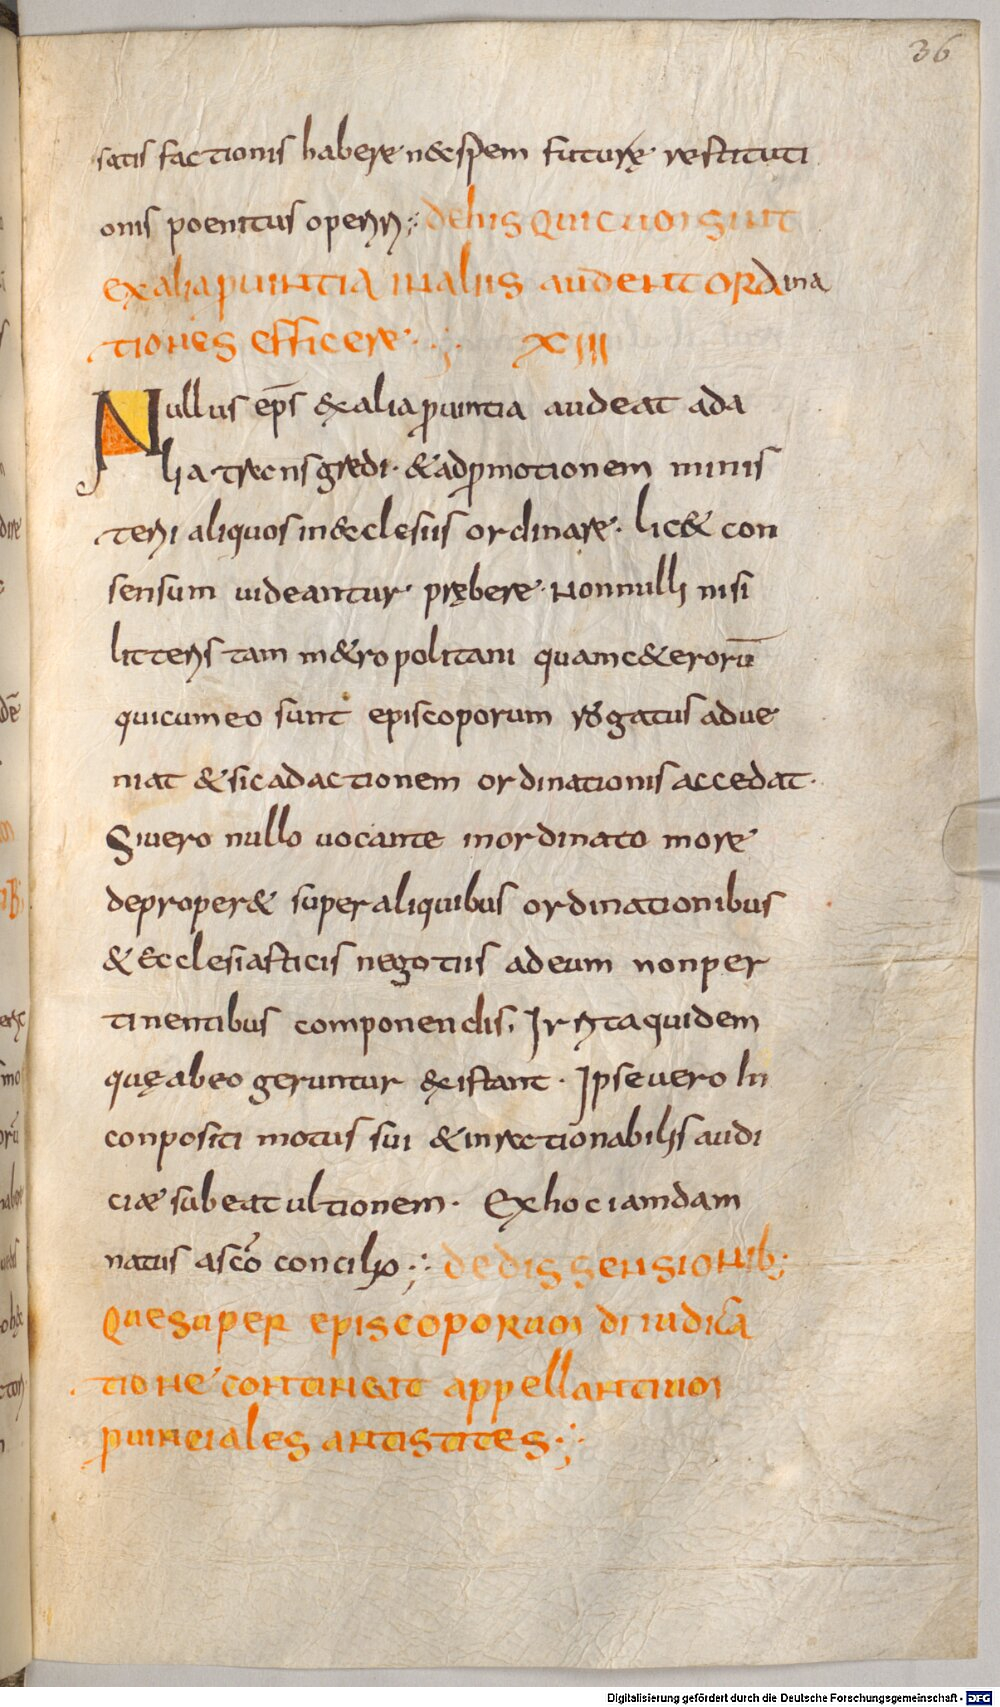 36
satis factionis habere n&spem futurę restituti
onis poenitus operiri; de his qui cum sint
ex alia puintia in aliis audent ordina
tiones efficere XIII
Nullus ep̄s &xalia puintia audeat ad a
lia transgredi· &ad pmotionem minis
terii aliquos in &clesiis ordinare· lic& con
sensum uideantur prębere· non nulli nisi
litteris tam m&ropolitani quam c&erorū
qui cum eo sunt episcoporum rogatus adue
niat &sic ad actionem ordinationis accedat·
Si uero nullo uocante inordinato more
deproper& super aliquibus ordinationibus
&ecclesiasticis negotiis ad eum non per
tinentibus componendis, Irrita quidem
quę ab eo geruntur &xistant· Ipse uero In
conpositi motus sui &inrectionabilis audi
ciae subeat ultionem· Ex hoc iam dam
natus a sc̄o concilio; de dissensionib;
que super episcoporum diiudica
tione contingat appellantium
puinciales antistites;
Digitalisierung gefördert durch die Deutsche Forschungsgemeinschaft - DFG